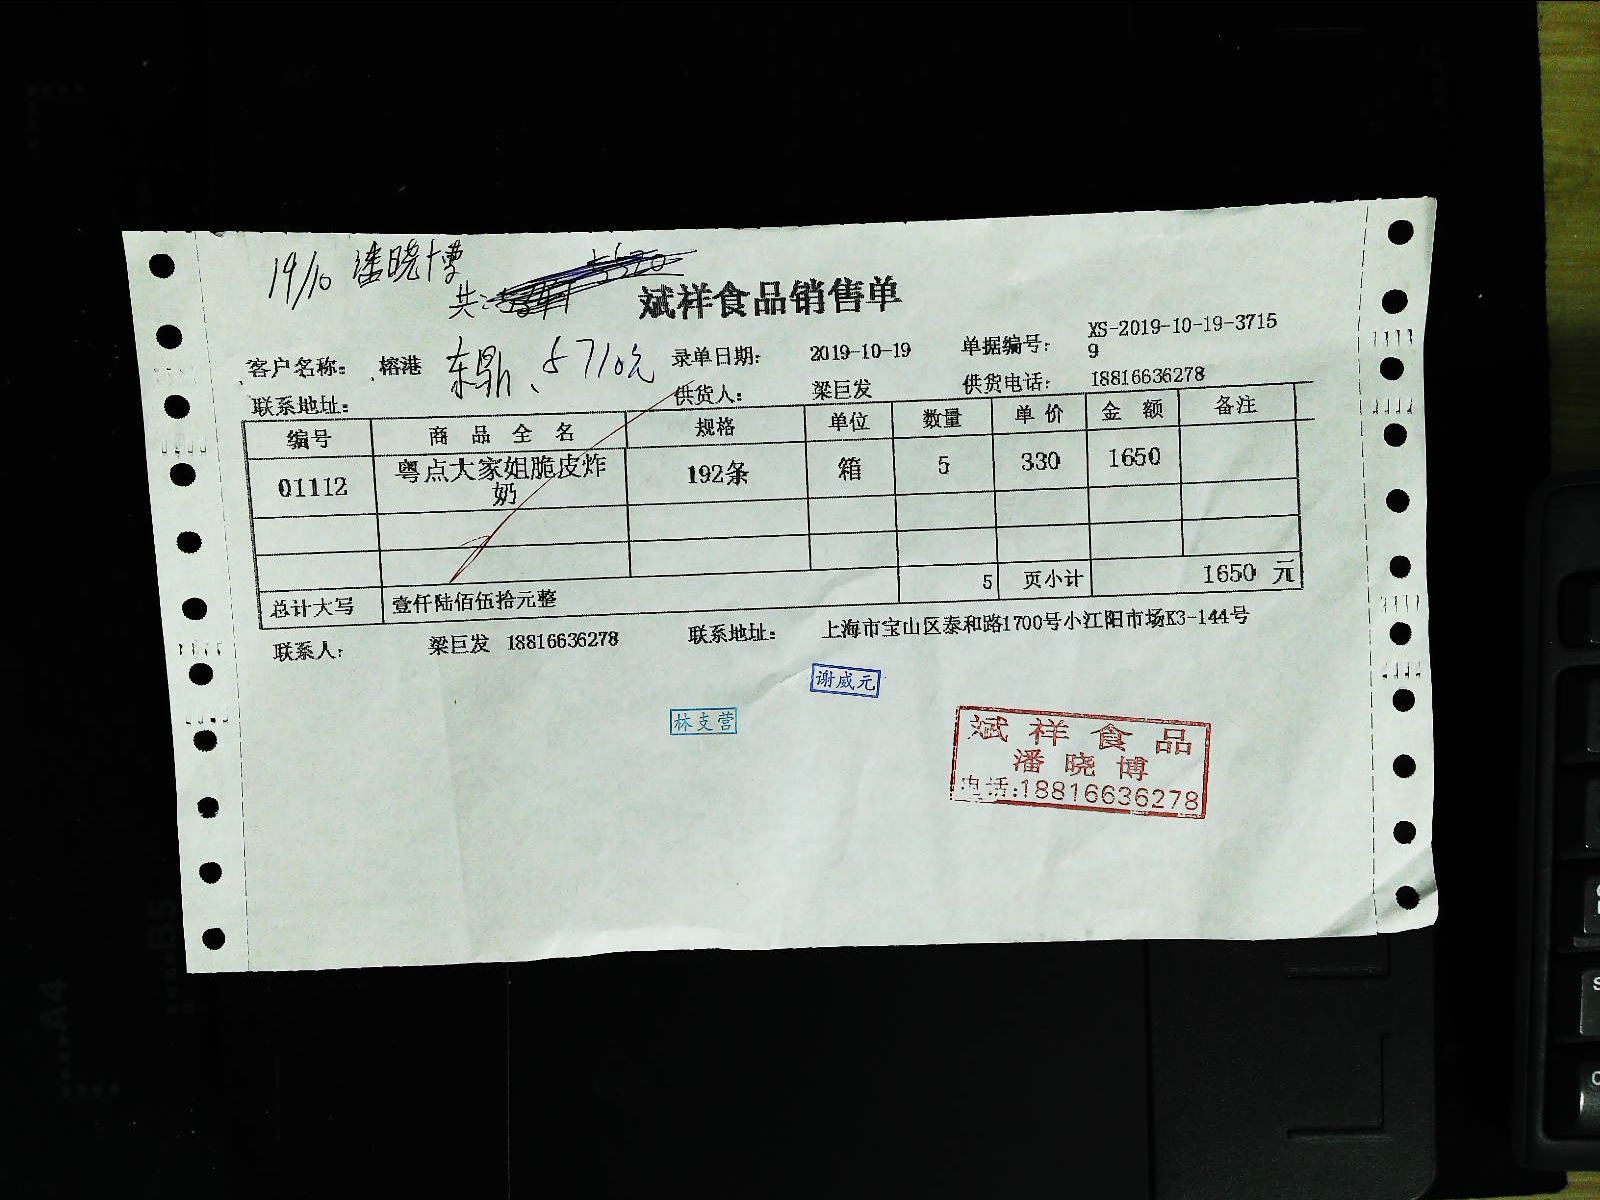 19/10 潘晓博
共:
斌祥食品销售单
客户名称: 榕港 东鼎、5710元 录单日期: 2019-10-19 单据编号: XS-2019-10-19-3715
9
联系地址: 供货人: 梁巨发 供货电话: 18816636278
编号 商品全名 规格 单位 数量 单价 金额 备注
01112 粤点大家姐脆皮炸 192条 箱 5 330 1650
奶
总计大写 壹仟陆佰伍拾元整 5 页小计 1650 元
联系人: 梁巨发 18816636278 联系地址: 上海市宝山区泰和路1700号小江阳市场K3-144号
谢威元
林支营
斌祥食品
潘晓博
电话:18816636278